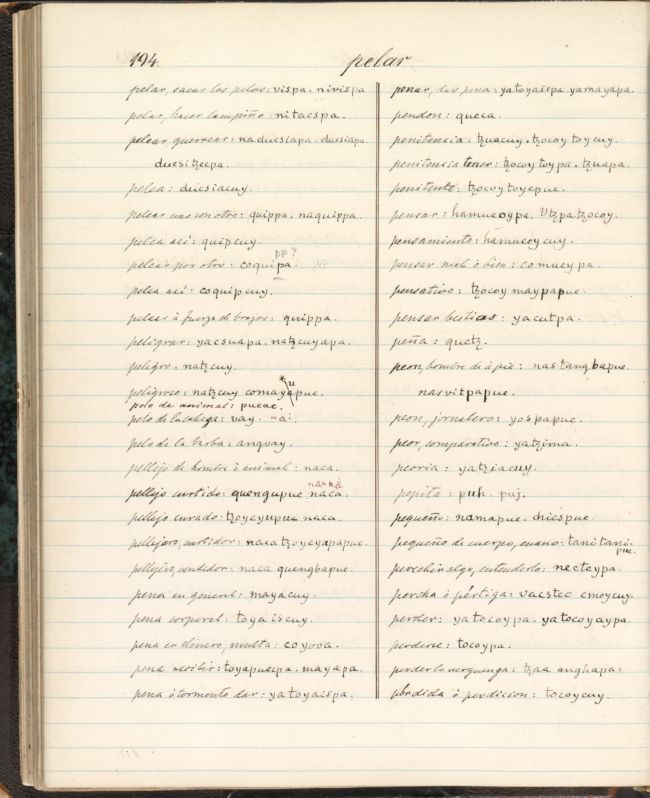 194.
pelar
pelar, sacar los pelos: vispa. nivispa
pelar, hacer lampiño: nitacspa.
pelear guerrear: naducsiapa. ducsiapa
ducsitzecpa.
pelea: ducsiacuy.
pelear uno con otro: quippa. naquippa.
pelea asi: quipcuy.
pp?
pelear por otro: coquipa.
pelea asi: coquipcuy.
pelear à fuerza de brazos: quippa.
peligrar: yacsuapa. natzcuyapa.
peligro: natzcuy.
*u
peligroso: natzcuy comayapue.
pelo de animal: pueac.
pelo de la cabeza: vay.
pelo de la barba: anquay.
pellejo de hombre ò animal: naca.
nacká
pellejo curtido: quengupue naca.
pellejo curado: tzoyeyupue naca.
pellejero, curtidor: naca tzoyeyapapue.
pellejero, vendedor: naca quengbapue.
pena en general: mayacuy.
pena corporal: toyaiscuy.
pena en dinero, multa: coyova.
pena recibir: toyapuecpa. mayapa.
pena ò tormento dar: yatoyaispa.
penar, dar pena: yatoyaispa. yamayapa.
pendon: queca.
penitencia: tzuacuy. tzocoy toycuy.
penitencia tener: tzocoy toypa. tzuapa.
penitente: tzocoy toyepue.
pensar: hamueoypa. Utzpa tzocoy.
pensamiento: hamueoycuy.
pensar mal ò bien: comueypa.
pensativo: tzocoy maypapue.
pensar bestias: yacutpa.
peña: quetz.
peon, hombre de à pie: nastangbapue.
nasvitpapue.
peon, jornalero: yospapue.
peor, comparativo: yatzima.
peoria: yatziacuy.
pepita: puh. puj.
pequeño: namapue. chicspue.
pequeño de cuerpo, enano: tanitani-
pue.
percebir algo, entenderlo: necteypa.
percha ò pértiga: vacstec emoycuy.
perder: yatocoypa. yatocoyaypa.
perderse: tocoypa.
perder la verguenza: tzaa anghapa:
pérdida ò perdicion: tocoycuy.